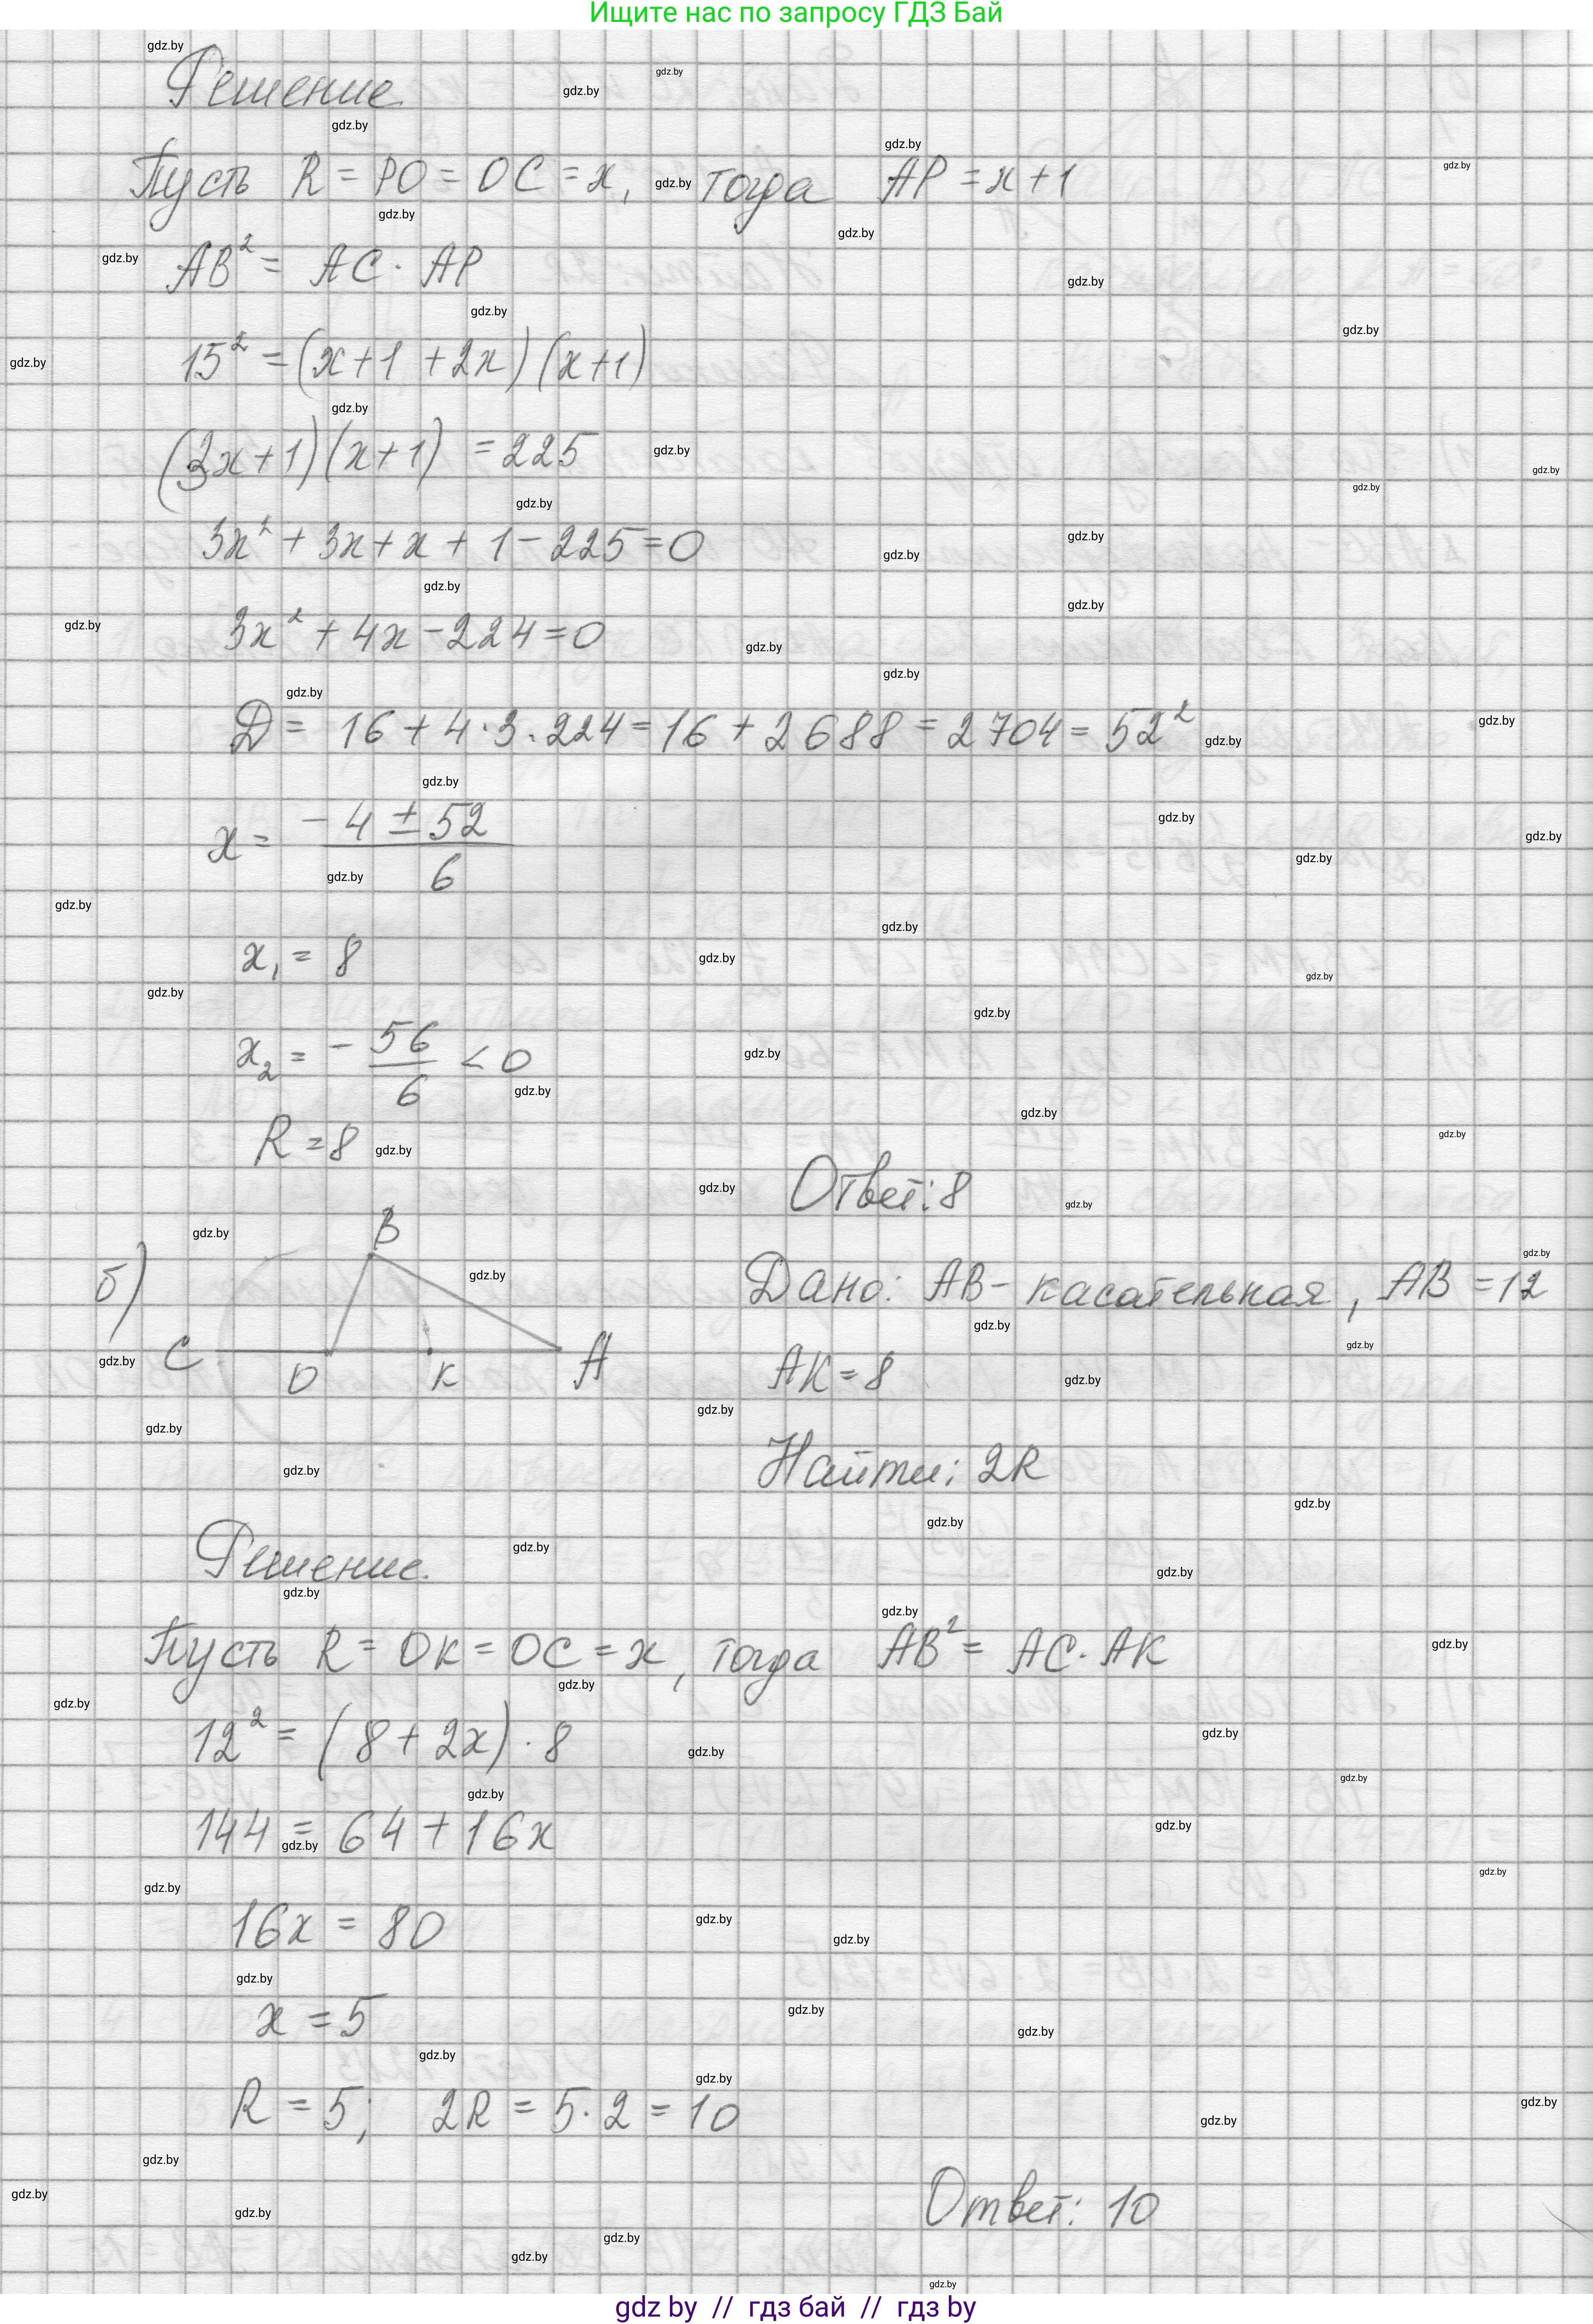 Ищите нас по запросу ГДЗ Бай
Решение
Пусть R = PO = OC = x, тогда AP = x+1
AB² = AC · AP
15² = (x+1 +2x)(x+1)
(3x+1)(x+1) = 225
3x² + 3x + x + 1 - 225 = 0
3x² + 4x - 224 = 0
Д = 16 + 4·3·224 = 16 + 2688 = 2704 = 52²
x = (-4 ± 52)/6
x₁ = 8
x₂ = - 56/6 < 0
R = 8
Ответ: 8
б)
B
C O K A
Дано: AB - касательная, AB = 12
AK = 8
Найти: 2R
Решение.
Пусть R = OK = OC = x, тогда AB² = AC · AK
12² = (8 + 2x) · 8
144 = 64 + 16x
16x = 80
x = 5
R = 5; 2R = 5·2 = 10
Ответ: 10
gdz by // гдз бай // гдз by